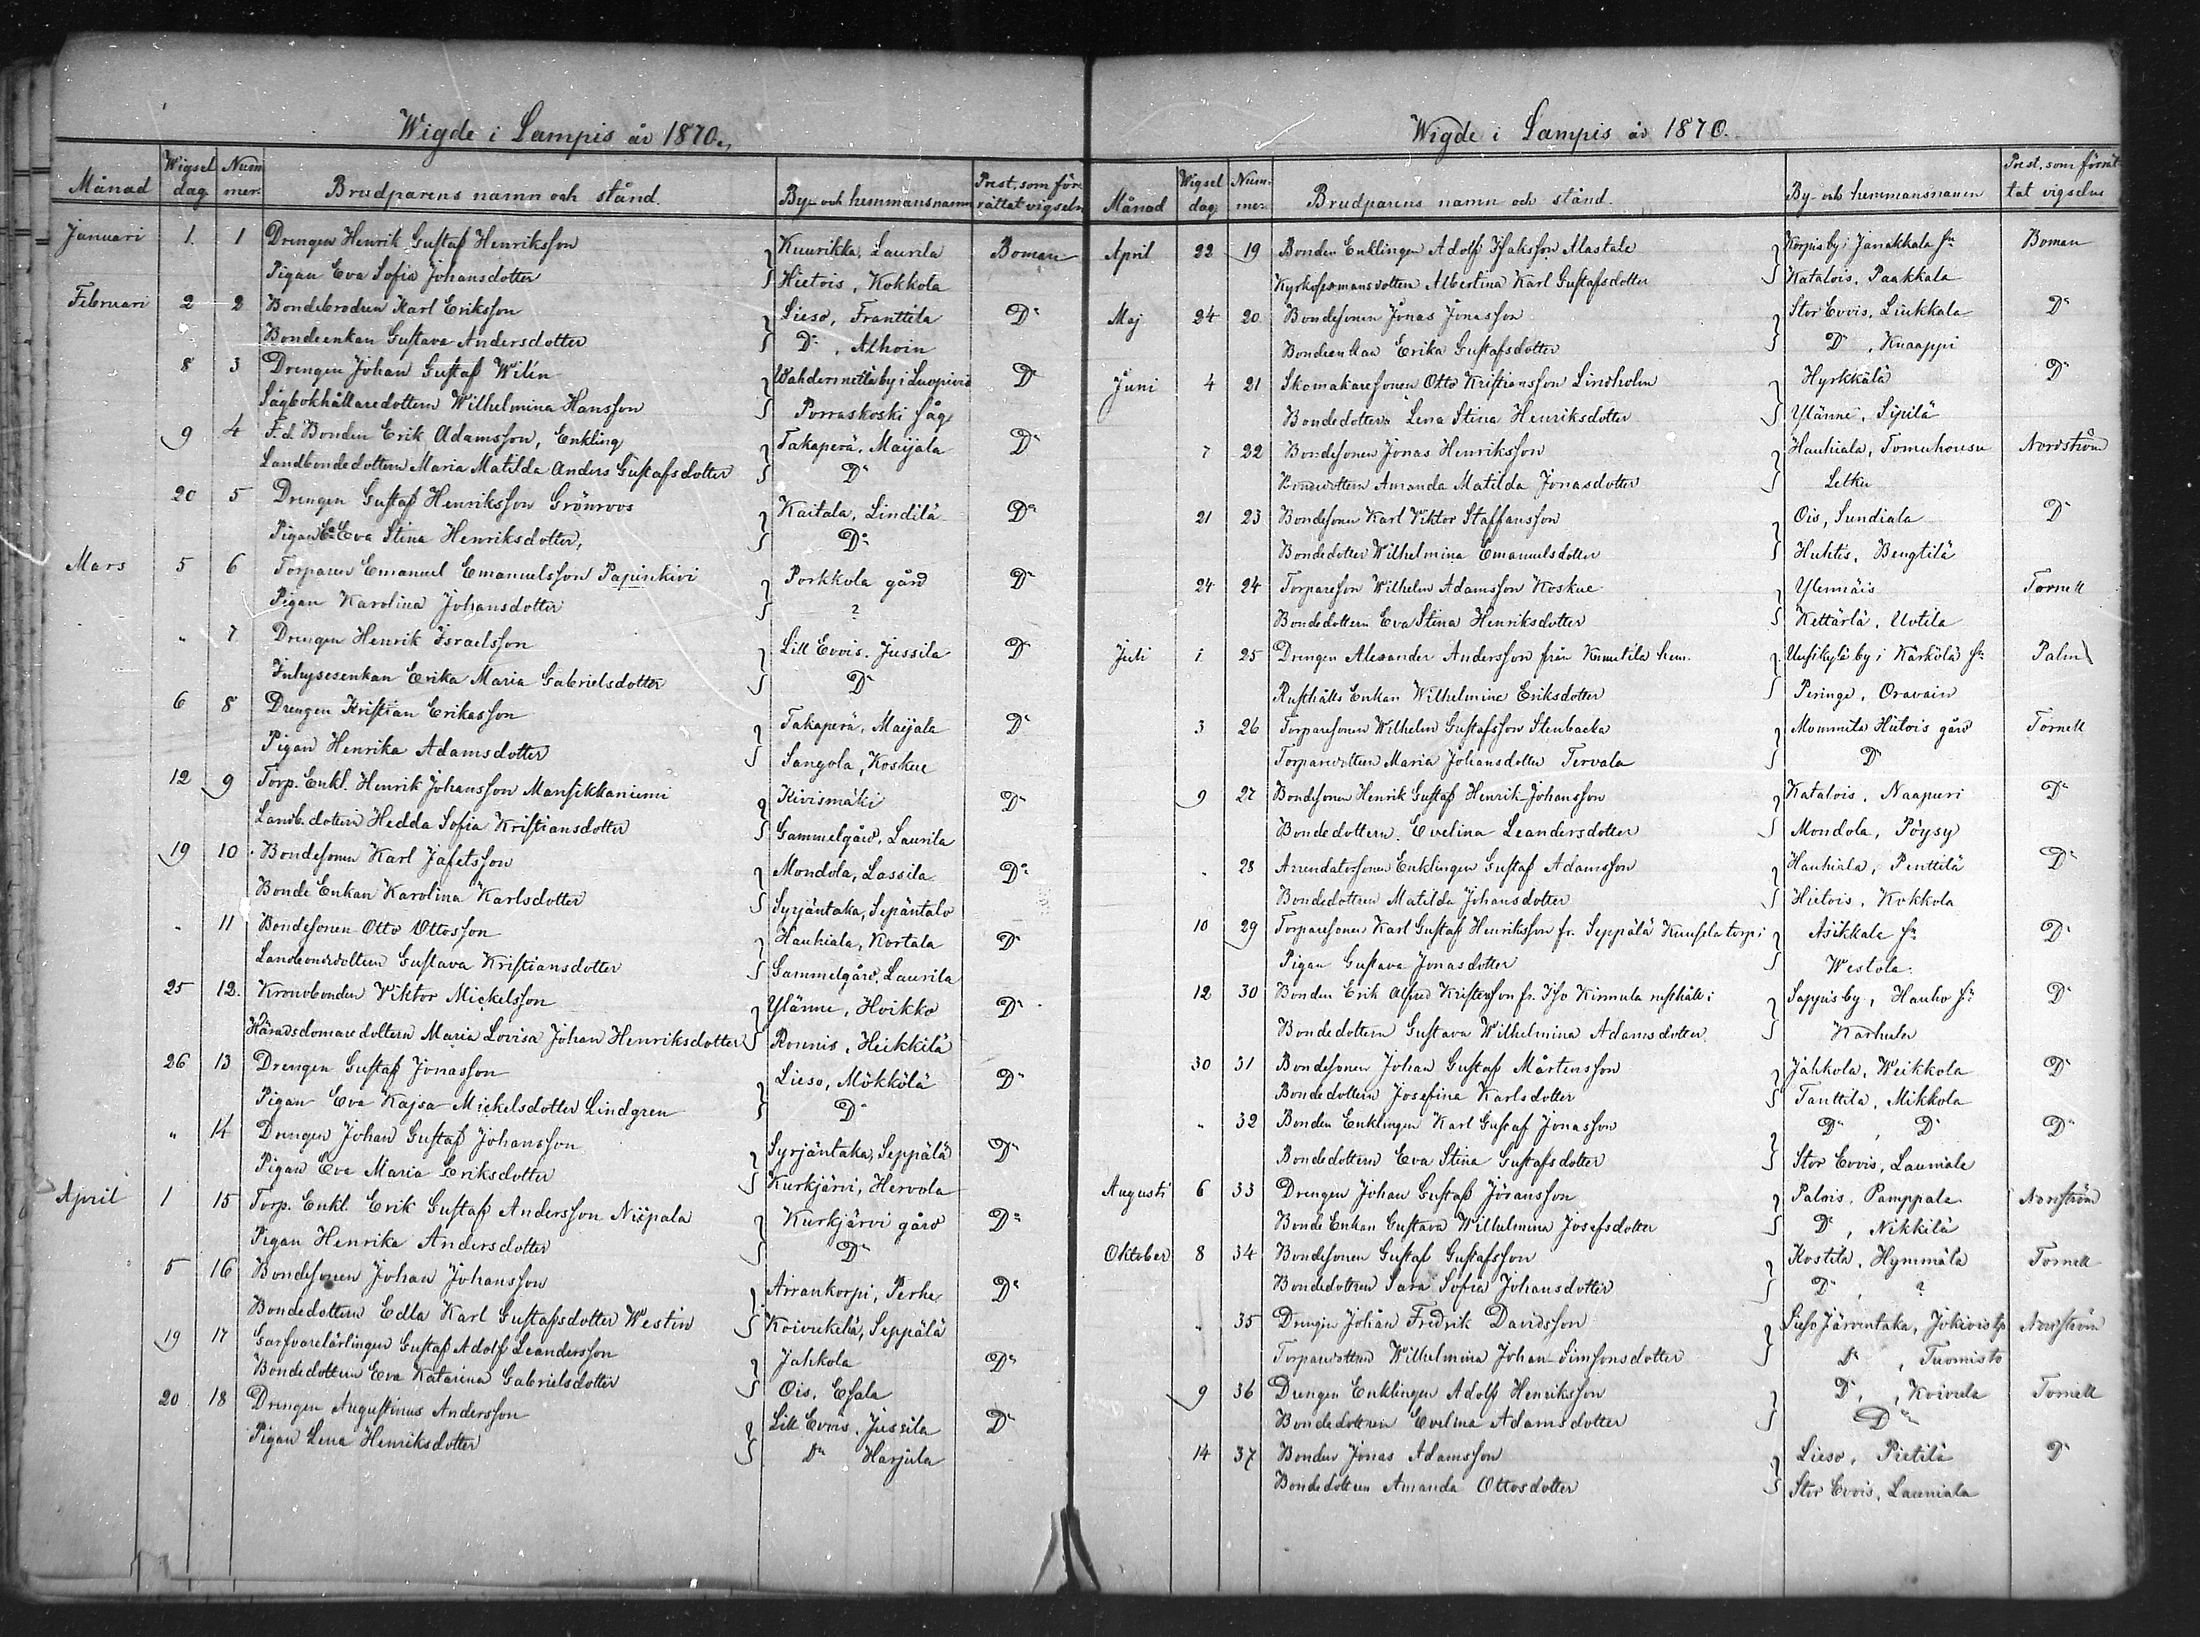 Wigde i Lampis år 1870.
Månad Wigsel dag Num mer. Brudparens namn och stånd. By- och hemmansnamn Prest. som för rättat vigseln
Januari 1. 1 Drengen Henrik Gustaf Henriksson Kuurikka, Laurila Boman
Pigan Eva Sofia Johansdotter Hietois, Kokkola
Februari 2 2 Bondebrodren Karl Eriksson Lieso, Franttila D:o
Bondeenkan Gustava Andersdotter D:o, Alhoin
8 3 Drengen Johan Gustaf Wilén by i Luopiois D:o
Sågbokhållaredottern Wilhelmina Hansson Porraskoski såg
9 4 F.d. Bonden Erik Adamsson, Enkling Takaperä, Maijala D:o
Landbondedottern Maria Matilda Anders Gustafsdotter D:o
20 5 Drengen Gustaf Henriksson Grönroos Kaitala, Lindilä D:o
Pigan Eva Stina Henriksdotter, D:o
Mars 5 6 Torparen Emanuel Emanuelsson Papinkivi Porkkola gård D:o
Pigan Karolina Johansdotter ?
" 7 Drengen Henrik Israelsson Lill Evois, Jussila D:o
Inhysesenkan Erika Maria Gabrielsdotter D:o
6 8 Drengen Kristian Eriksson Takaperä, Maijala D:o
Pigan Henrika Adamsdotter Sangola, Koskue
12 9 Torp. Enkl. Henrik Johansson Mansikkaniemi Kivismäki D:o
Landb. dottern Hedda Sofia Kristiansdotter Gammelgård, Laurila
19 10 Bondesonen Karl Jafetsson Mondola, Lassila D:o
Bonde Enkan Karolina Karlsdotter Syrjäntaka, Sepäntalo
" 11 Bondesonen Otto Ottosson Haukiala, Kortala D:o
Landbondedottern Gustava Kristiansdotter Gammelgård, Laurila
25 12. Kronobonden Viktor Mickelsson Ylänne, Hoikko D:o
Häradsdomaredottern Maria Lovisa Johan Henriksdotter Ronnis, Heikkilä
26 13 Drengen Gustaf Jonasson Lieso, Mökkölä D:o
Pigan Eva Kajsa Mickelsdotter Lindgren D:o
" 14 Drengen Johan Gustaf Johansson Syrjäntaka, Seppälä D:o
Pigan Eva Maria Eriksdotter Kurkjärvi, Hervola
April 1 15 Torp. Enkl. Erik Gustaf Andersson Niipala Kurkjärvi gård D:o
Pigan Henrika Andersdotter D:o
5 16 Bondesonen Johan Johansson Arrankorpi, Perhe D:o
Bondedottern Edla Karl Gustafsdotter Westin Koivukylä, Seppälä
19 17 Garfvarelärlingen Gustaf Adolf Leandersson Jahkola D:o
Bondedottern Eva Katarina Gabrielsdotter Ois, Esala
20 18 Drengen Augustinus Andersson Lill Evois, Jussila D:o
Pigan Lena Henriksdotter D:o Harjula
Wigde i Lampis år 1870.
Månad Wigsel dag. Num. mer. Brudparens namn och stånd. By- och hemmansnamn Prest. som förrät tat vigseln
April 22 19 Bonden Enklingen Adolf Isaksson Alastalo Korpis by i Janakkala sn Boman
Kyrkosexmansdottern Albertina Karl Gustafsdotter Katalois, Paakkala
Maj 24 20 Bondesonen Jonas Jonasson Stor Evois, Liukkala D:o
Bondeenkan Erika Gustafsdotter D:o, Knaappi
Juni 4 21 Skomakaresonen Otto Kristiansson Lindholm Hyrkkälä D:o
Bondedottern Lena Stina Henriksdotter Ylänne, Sipilä
7 22 Bondesonen Jonas Henriksson Haukiala, Nordström
Bondedottern Amanda Matilda Jonasdotter Letku
21 23 Bondesonen Karl Viktor Staffansson Ois, Sundiala D:o
Bondedotter Wilhelmina Emanuelsdotter Huhtis, Bengtilä
24 24 Torpareson Wilhelm Adamsson Koskue Ylennäis Tornell
Bondedottern Eva Stina Henriksdotter Kettärlä, Uotila
Juli 1 25 Drengen Alexander Andersson från Kunutila hem. Uusikylä by i Kärkölä sn Palm
Rusthålls Enkan Wilhelmine Eriksdotter Peringe, Oravain
3 26 Torparesonen Wilhelm Gustafsson Stenbacka Mommila Hietois gård Tornell
Torparedottern Maria Johansdotter Tervala D:o
9 27 Bondesonen Henrik Gustaf Henrik Johansson Katalois, Naapuri D:o
Bondedottern Evelina Leandersdotter Mondola, Pöysy
" 28 Arrendatorsonen Enklingen Gustaf Adamsson Haukiala, Penttilä D:o
Bondedottren Matilda Johansdotter Hietois, Kokkola
10 29 Torparesonen Karl Gustaf Henriksson fr. Seppälä torp i Asikkala sn D:o
Pigan Gustava Jonasdotter Westola.
12 30 Bonden Erik Alfred Kristersson fr. Iso Kinnula rusthåll i Sappis by, Hauho sn D:o
Bondedottern Gustava Wilhelmina Adamsdotter Karhula
30 31 Bondesonen Johan Gustaf Mårtensson Jahkola, Weikkola D:o
Bondedottern Josefina Karlsdotter Tanttila, Mikkola
" 32 Bonden Enklingen Karl Gustaf Jonasson D:o, D:o D:o
Bondedottern Eva Stina Gustafsdotter Stor Evois, Launiala
Augusti 6 33 Drengen Johan Gustaf Göransson Palois, Pamppala Nordström
Bonde Enkan Gustava Wilhelmina Josefsdotter D:o, Nikkilä
Oktober 8 34 Bondesonen Gustaf Gustafsson Kostila, Hymmälä Tornell
Bondedottren Sara Sofia Johansdotter D:o, ?
" 35 Drengen Johan Fredrik Davidsson Lieso Järventaka, Nordström
Torparedottren Wilhelmina Johan Simsonsdotter D:o, Tuomisto
9 36 Drengen Enklingen Adolf Henriksson D:o, Koivula Tornell
Bondedottren Evelina Adamsdotter D:o
14 37 Bonden Jonas Adamsson Lieso, Pietilä D:o
Bondedottren Amanda Ottosdotter Stor Evois, Launiala